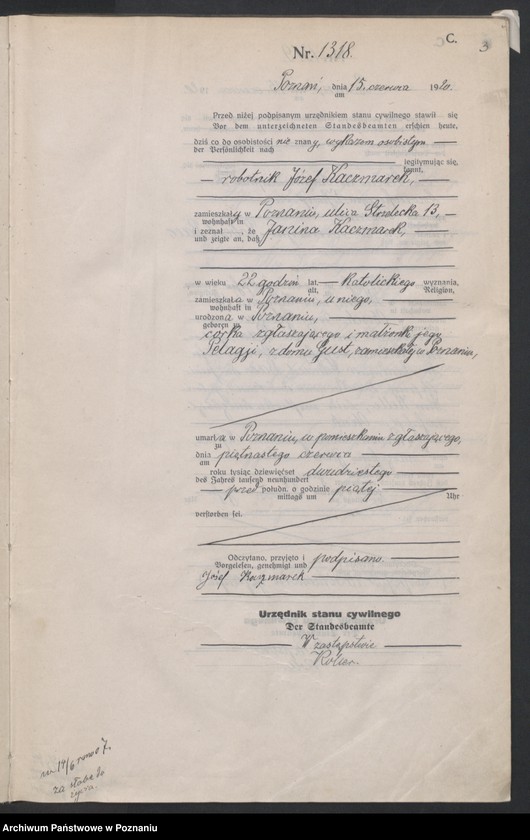 C.
3
Nr. 1318.
Poznań, dnia 15. czerwca 1920.
am
Przed niżej podpisanym urzędnikiem stanu cywilnego stawił się
Vor dem unterzeichneten Standesbeamten erschien heute,
dziś co do osobistości nie znany, wykazem osobistym
der Persönlichkeit nach
legitymując się,
kannt,
robotnik Józef Kaczmarek,
zamieszkały w Poznaniu, ulica Strzelecka 13,
wohnhaft in
i zeznał, że Janina Kaczmarek,
und zeigte an, daß
w wieku 22 godzin lat, katolickiego wyznania,
alt, Religion,
zamieszkała w Poznaniu, u niego,
wohnhaft in
urodzona w Poznaniu,
geboren zu
córka zgłaszającego i małżonki jego
Pelagji, z domu Gust, zamieszkałej w Poznaniu,
umarła w Poznaniu, w pomieszkaniu zgłaszającego,
zu
dnia piętnastego czerwca
am
roku tysiąc dziewięćset dwudziestego
des Jahres tausend neunhundert
przed połudn. o godzinie piątej
mittags um Uhr
verstorben sei.
Odczytano, przyjęto i podpisano.
Vorgelesen, genehmigt und
Józef Kaczmarek
Urzędnik stanu cywilnego
Der Standesbeamte
W zastępstwie
um. 14/6 rano o 7.
za słabe do
życia.
Archiwum Państwowe w Poznaniu